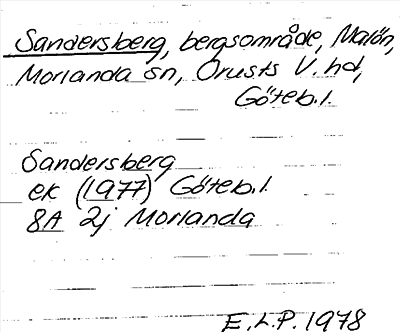 Sandersberg, bergsområde, Malön,
Morlanda sn, Orusts V. hd,
Göteb.l.
Sandersberg
ek (1977) Göteb.l.
8A 2j Morlanda
E.L.P. 1978